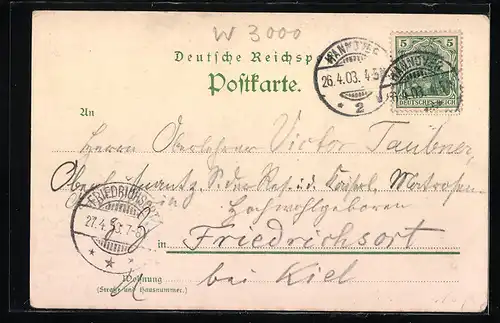 W 3000
Deutsche Reichspo
Postkarte.
HANNOVER
26.4.03. 4-5
* 2
5 5
HANNOVER
DEUTSCHES REICH
An
Herrn Oberlehrer Victor Taubner,
d. Res. d. Kaiserl. Matrosen
Hochwohlgeboren
FRIEDRICHSORT
27.4.03.7-8
in Friedrichsort
bei Kiel
Wohnung
(Straße und Hausnummer.)